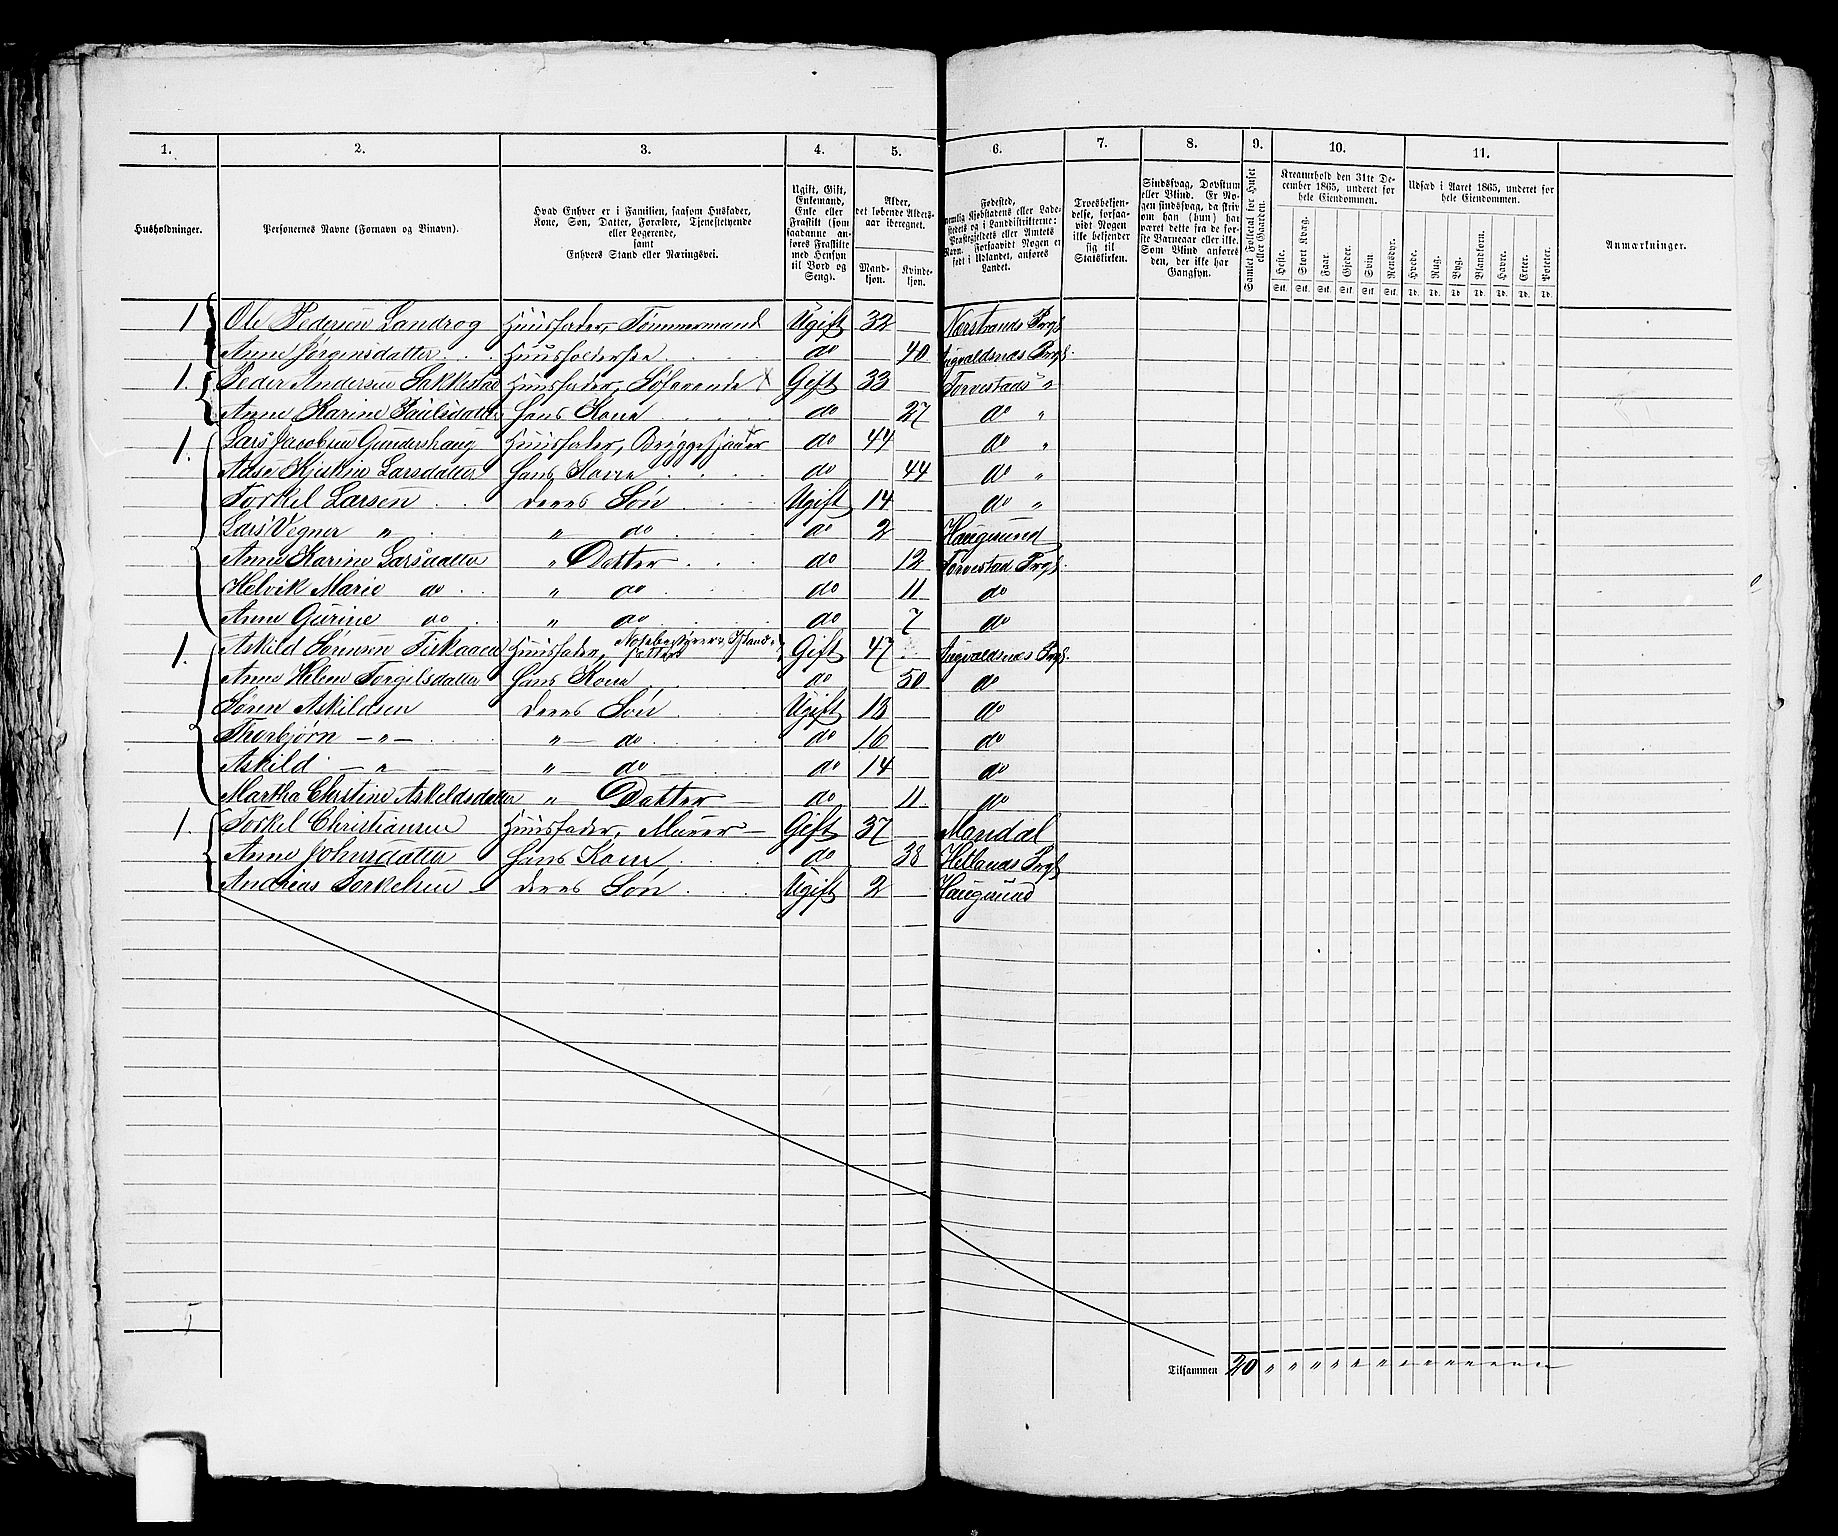 1. 2. 3. 4. 5. 6. 7. 8. 9. 10. 11.
Husholdninger.
Personernes Navne (Fornavn og Binavn).
Hvad Enhver er i Familien, saasom Husfader, Kone, Søn, Datter, Forældre, Tjenestetyende eller Logerende, samt Enhvers Stand eller Næringsvei.
Ugift, Gift, Enkemand, Enke eller Fraskilt (som saadanne anføres Fraskilte med Hensyn til Bord og Seng).
Alder, det løbende Aldersaar iberegnet.
Mandkjøn. Kvindekjøn.
Fødested, nemlig Kjøbstadens eller Ladestedets og i Landdistrikterne: Præstegjeldets eller Amtets Navn. Forsaavidt Nogen er født i Udlandet, anføres Landet.
Troesbekjendelse, forsaavidt Nogen ikke bekjender sig til Statskirken.
Sindssvag, Døvstum eller Blind. Er Nogen sindssvag, da skriv om han (hun) har været dette fra de første Barneaar eller ille. Som Blind anføres den, der ikke har Gangsyn.
Samlet Folketal for Huset eller Gaarden.
Kreaturhold den 31te December 1865, underet for hele Eiendommen.
Heste. Stort Kvæg. Faar. Gjeder. Svin. Rensdyr.
Stk. Stk. Stk. Stk. Stk. Stk.
Udsæd i Aaret 1865, underet for hele Eiendommen.
Hvede. Rug. Byg. Blandkorn. Havre. Erter. Poteter.
Td. Td. Td. Td. Td. Td. Td.
Anmærkninger.
1. Ole Pedersen Landrog Huusfader, Tømmermand Ugift 32 Nærstrands Prgj.
Anne Jørgensdatter Huusholderske do 40 Augvaldsnæs Prgj.
1. Peder Andersen Sakkestad Huusfader, Søfarende Gift 33 Torvestads "
Anne Karine Paulsdatter Hans Kone do 27 do "
1. Lars Jacobsen Gundershaug Huusfader, Bryggesjauer do 44 do "
Aase Kjistine Larsdatter Hans Kone do 44 do "
Torkel Larsen deres Søn Ugift 14 do "
Lars Vegner " " do do 2 Haugesund
Anne Karine Larsdatter " Datter do 12 Torvestad Prgj.
Helvik Marie do " do do 11 do
Anne Gurine do " do do 7 do
1. Askild Sørensen Fiskaaen Huusfader, Gift 47 Augvaldsnæs Prgj.
Anne Helene Torgilsdatter Hans Kone do 50 do
Søren Askildsen deres Søn Ugift 18 do
Thorbjørn – " – " – do do 16 do
Askild – " – " – do do 14 do
Martha Christine Askildsdatter " Datter do 11 do
1. Torkel Christiansen Huusfader, Murer Gift 37 Mandal
Anne Johnsdatter Hans Kone do 38 Hetlands Prgj
Andreas Torkelsen deres Søn Ugift 2 Haugesund
5
Tilsammen 20 " " " " " " " " " " " " "